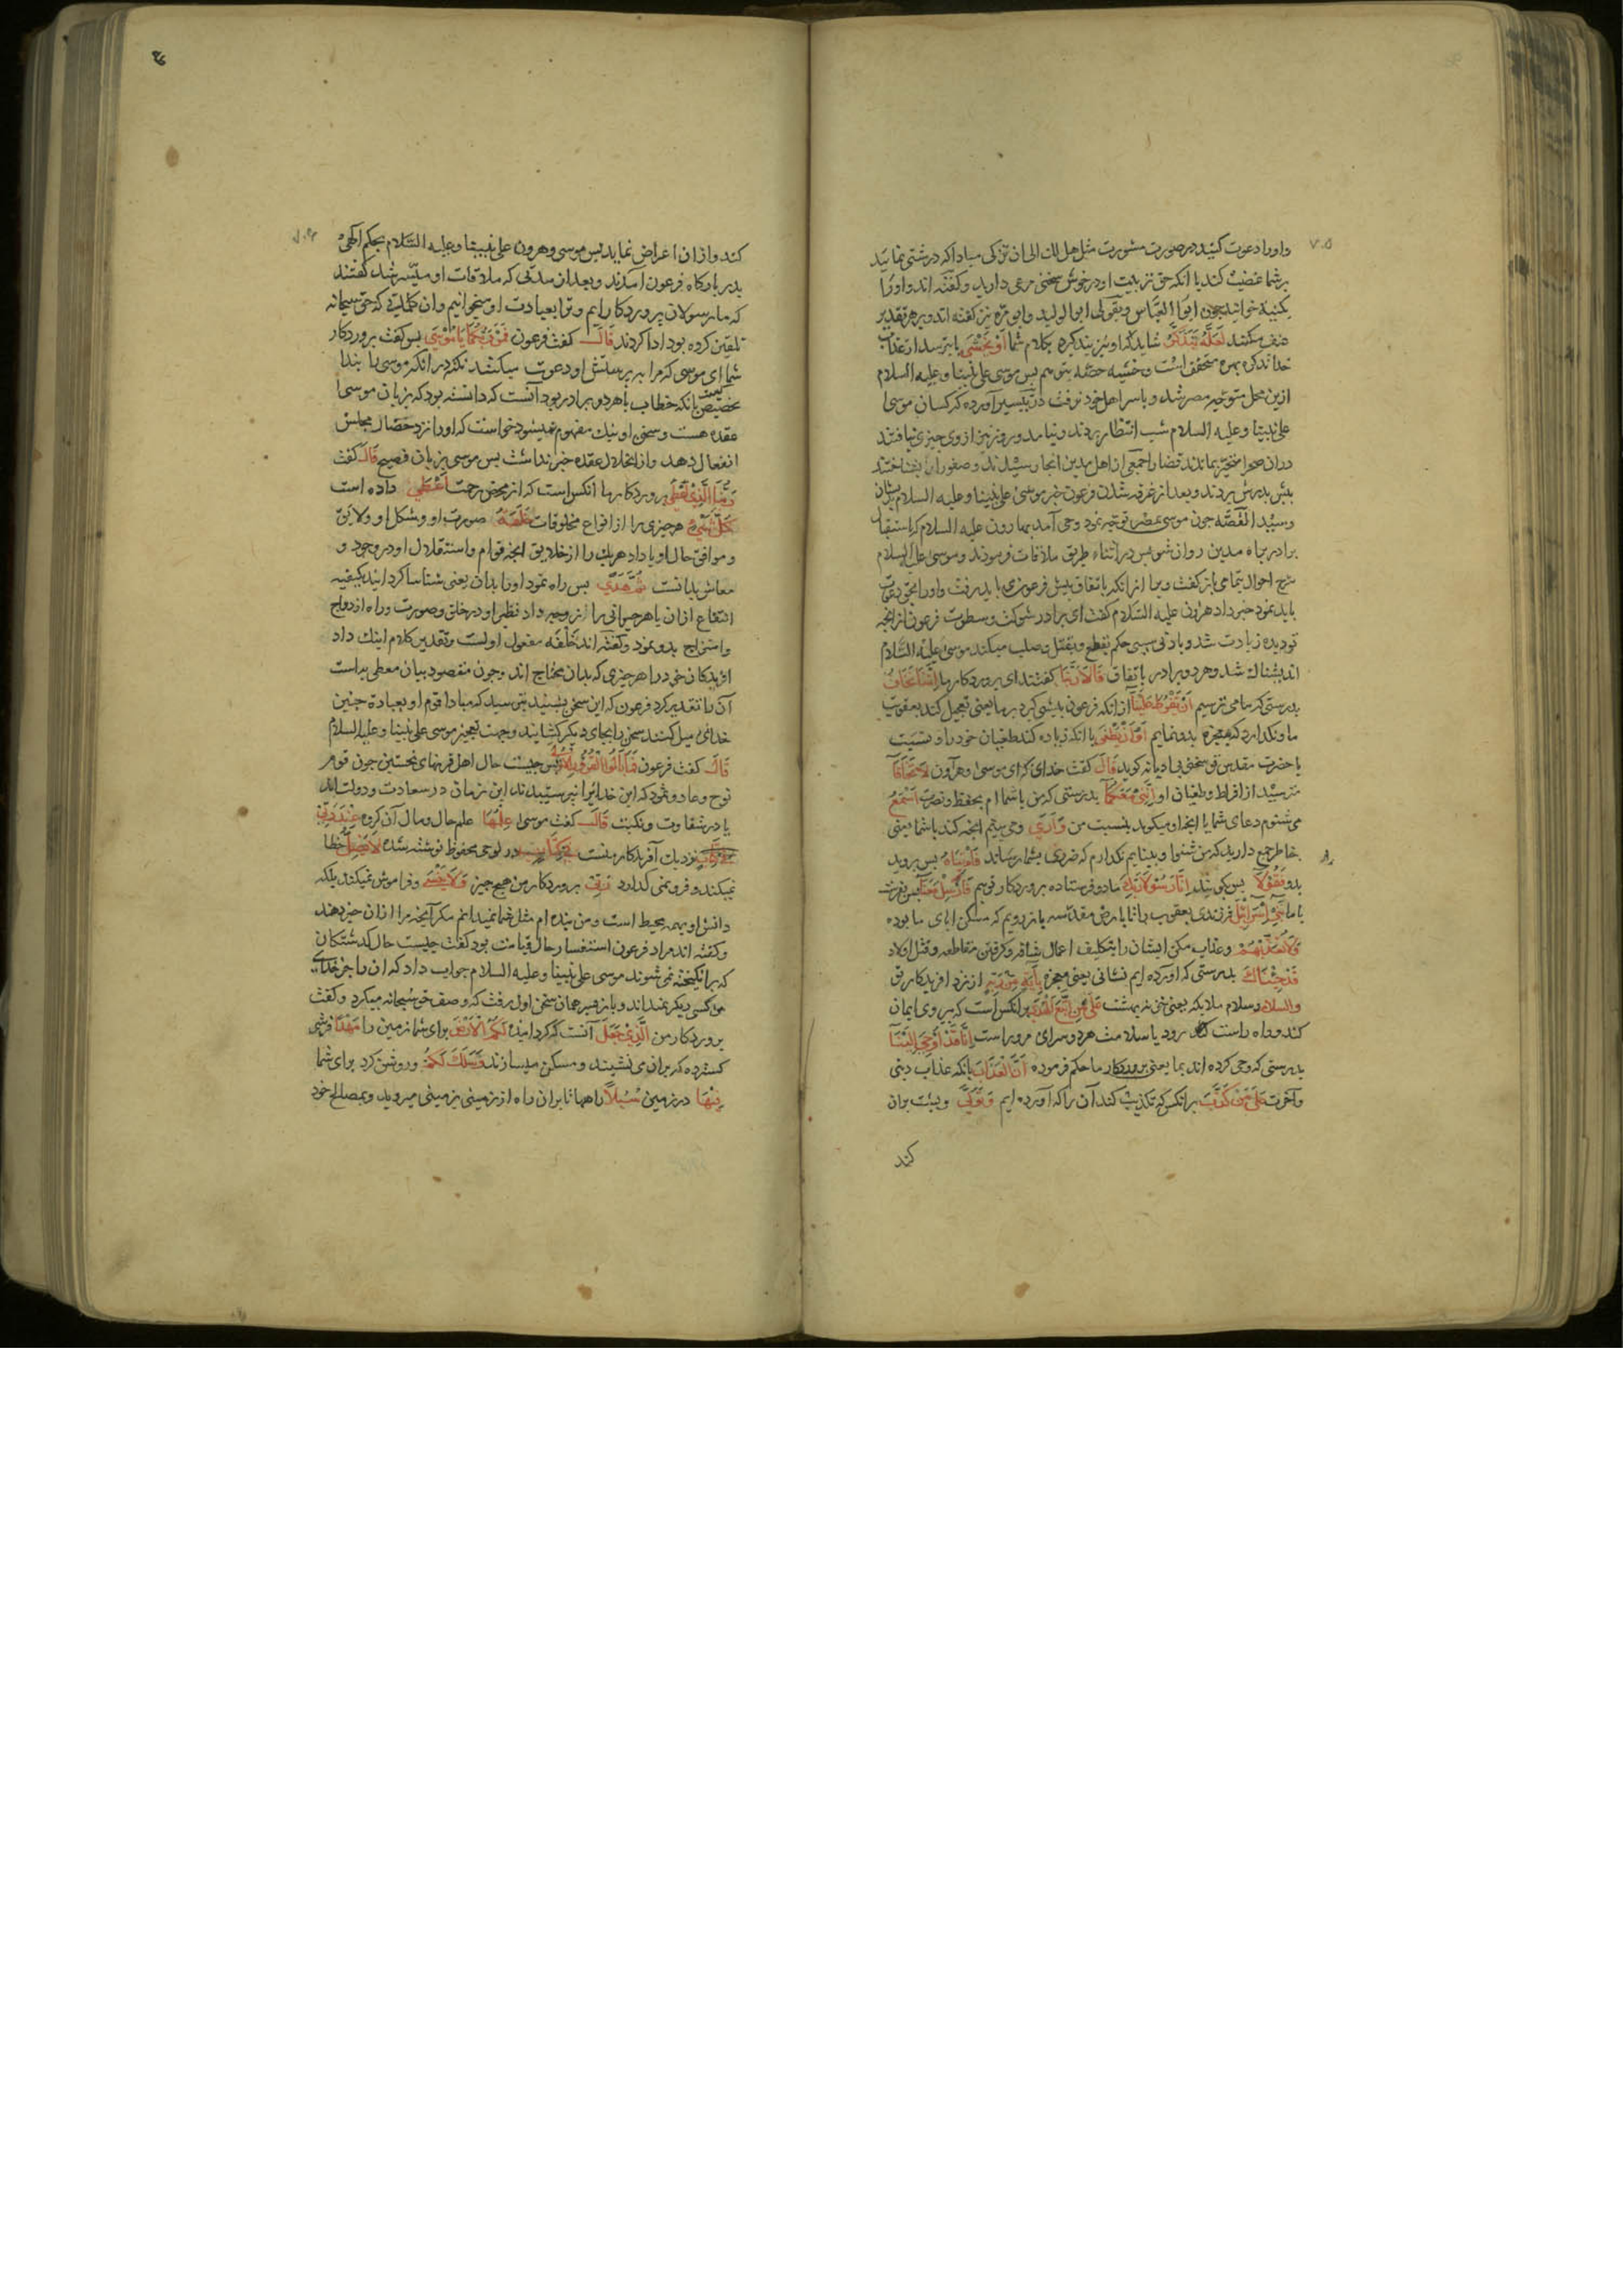 داورا دعوت کنید در صورت مشورت مثل هل لك الی ان تزکی مبادا که درشتی نمائید
بر شما غضب کند یا انکه حق تربیت او در خوش سخنی مرعی دارید و کفته اند او را
بکنیة خوانید یعنی ابو العباس و بقولی ابو الولید و ابو مره نیز کفته اند و بر هر تقدیر
لَعَلَّهُ يَتَذَكَّرُ شاید که او پند کیرد بکلام شما اَوْ يَخْشٰى یا بترسد از عذاب
خدا
ازین محل متوجه مصر شد و با سر اهل خود نرفت در تیسیر آورده که کسان موسی
علی نبینا و علیه السلام شب انتظار بردند و نیامد و روز نیز از وی خبری نیافتند
دران صحرا متحیر بماندند قضا را جمعی از اهل مدین انجا رسیدند و صفورا را بشناختند
پیش پدرش بردند و بعد از غرق شدن فرعون خبر موسی علی نبینا و علیه السلام بدیشان
رسید القصه چون موسی بمصر توجه نمود وحی آمد بهارون علیه السلام که باستقبال
برادر براه مدین روان شو پس در اثناء طریق ملاقات نمودند و موسی علیه السلام
شرح احوال بتمامی باز کفت و بیا انرا که باتفاق پیش فرعون می باید رفت و او را بحق دعوت
باید نمود خبر داد هرون علیه السلام کفت ای برادر شوکت و سطوت فرعون از انچه
تو دیده زیادت شد و بادنی سببی حکم بقطع و بقتل و صلب میکند موسی علیه السلام
اندیشناك شد و هر دو برادر باتفاق قَالَا رَبَّنَا کفتند ای پروردکار ما اِنَّنَا نَخَافُ
بدرستی که ما می ترسیم اَنْ يَفْرُطَ عَلَيْنَا ازانکه فرعون پیشی کیرد بر ما یعنی تعجیل کند بعقوبت
ما و نکذارد که معجزه بدو نمایم اَوْ اَنْ يَطْغٰى یا انکه زیاده کند طغیان خود را و نسبت
با حضرت مقدس تو سخنی بی ادبانه کوید قَالَ کفت خدای که ای موسی و هرون لَا تَخَافَا
مترسید از افراط و طغیان او اِنَّنِي مَعَكُمَا بدرستی که من با شماام بحفظ و نصرت اَسْمَعُ
می شنوم دعای شما یا انچه او میکوید بنسبت من وَاَرٰى و می بینم انچه کند با شما یعنی
خاطر جمع دارید که من شنوا و بینایم نکذارم که ضرری بشما رساند فَاْتِيَاهُ پس بروید
بدو فَقُوْلَا پس بکوئید اِنَّا رَسُوْلَا رَبِّكَ ما دو فرستاده پروردکار توئیم فَاَرْسِلْ مَعَنَا پس بفرست
با ما بَنِيْ اِسْرَائِيْلَ فرزندان یعقوب را تا بارض مقدسه باز رویم که مسکن ابای ما بوده
وَلَا تُعَذِّبْهُمْ و عذاب مکن ایشان را بتکلیف اعمال شاقه و کرفتن مقاطعه و قتل اولاد
قَدْ جِئْنَاكَ بدرستی که آورده ایم نشانی یعنی معجزه بِاٰيَةٍ مِنْ رَبِّكَ از نزد افریدکار تو
والسلام و سلام ملایکه یعنی خزنه بهشت عَلٰى مَنِ اتَّبَعَ الْهُدٰى بر انکس است که پیروی ایمان
کند و راه راست رود یا سلامت هر دو سرای مر وراست اِنَّا قَدْ اُوْحِيَ اِلَيْنَا
بدرستی که وحی کرده اند بما یعنی پروردکار ما حکم فرموده اَنَّ الْعَذَابَ بانکه عذاب دینی
و آخرت عَلٰى مَنْ كَذَّبَ بر انکس که تکذیب کند آن را که آورده ایم وَتَوَلّٰى و پشت بران
کند
کند و ازان اعراض نماید پس موسی و هرون علی نبینا و علیه السلام بحکم الهی
بدر بارکاه فرعون امدند و بعد از مدتی که ملاقات او میسر شد کفتند
که ما رسولان پروردکاریم و ترا بعبادت او میخوانیم و ان کلماتی که حق سبحانه
تلقین کرده بود ادا کردند قَالَ کفت فرعون فَمَنْ رَبُّكُمَا يَا مُوْسٰى پس کفت پروردکار
شما ای موسی که مرا به پرستش او دعوت میکنید نکته در انکه موسی را بندا
تخصیص کردن بانکه خطاب با هر دو برادر بود آنست که دانسته بود که بزبان موسی
عقده هست و سخن او نیك مفهوم نمیشود خواست که او را نزد حضار مجلس
انفعال دهد و از انحلال عقده خبر نداشت پس موسی بزبان فصیح قَالَ کفت
رَبُّنَا الَّذِيْ اَعْطٰى پروردکار ما انکس است که از محض رحمت اَعْطٰى داده است
كُلَّ شَيْءٍ هر چیزی را از انواع مخلوقات خَلْقَهُ صورت او و شکل او و لایق
و موافق حال او یا داد هریك را از خلایق انچه قوام و استقلال او در وجود و
معاش بدانست ثُمَّ هَدٰى پس راه نمود او را بدان یعنی شناسا کردانید بکیفیه
انتفاع ازان یا هر حیوانی را از زوجه داد نظیر او در خلق و صورت و راه ازدواج
و امتزاج بدو نمود و کفته اند خَلْقَهُ مفعول اولست و تقدیر کلام اینك داد
افریدکان خود را هر چیزی که بدان محتاج اند و چون مقصود بیان معطی بهاست
آن را تقدیر کرد فرعون که این سخن بشنید بترسید که مبادا قوم او بعبادة چنین
خدائی میل کنند سخن را بجای دیکر کشانید و بجهت تعجیز موسی علی نبینا و علیه السلام
قَالَ کفت فرعون فَمَا بَالُ الْقُرُوْنِ الْاُوْلٰى پس چیست حال اهل قرنهای نخستین چون قوم
نوح و عاد و ثمود که این خدایرا نپرستیدند این زمان در سعادت و دولت اند
یا در شقاوت و نکبت قَالَ کفت موسی عِلْمُهَا علم حال و مال آن کروه عِنْدَ رَبِّيْ
نزدیك آفریدکار منست فِيْ كِتَابٍ در لوح محفوظ نوشته شده لَا يَضِلُّ خطا
نمیکند و فرو نمی کذارد رَبِّيْ پروردکار من هیچ چیز وَلَا يَنْسٰى و فراموش نمیکند بلکه
دانش او بهمه محیط است و من بنده ام مثل شما نمیدانم مکر آنچه مرا ازان خبر دهند
و کفته اند مراد فرعون استفسار حال قیامت بود کفت چیست حال کذشتکان
که برانکیخته نمی شوند موسی علی نبینا و علیه السلام جواب داد که ان را جز خدای
من کسی دیکر نمیداند و باز بسر همان سخن اول رفت که وصف حق سبحانه میکرد و کفت
پروردکار من الَّذِيْ جَعَلَ آنست که کردانید لَكُمُ الْاَرْضَ برای شما زمین را مَهْدًا فرشی
کسترده که بران می نشینید و مسکن میسازند وَسَلَكَ لَكُمْ و روشن کرد برای شما
فِيْهَا در زمین سُبُلًا راهها تا بران راه از زمینی بزمینی میروید و بمصالح خود